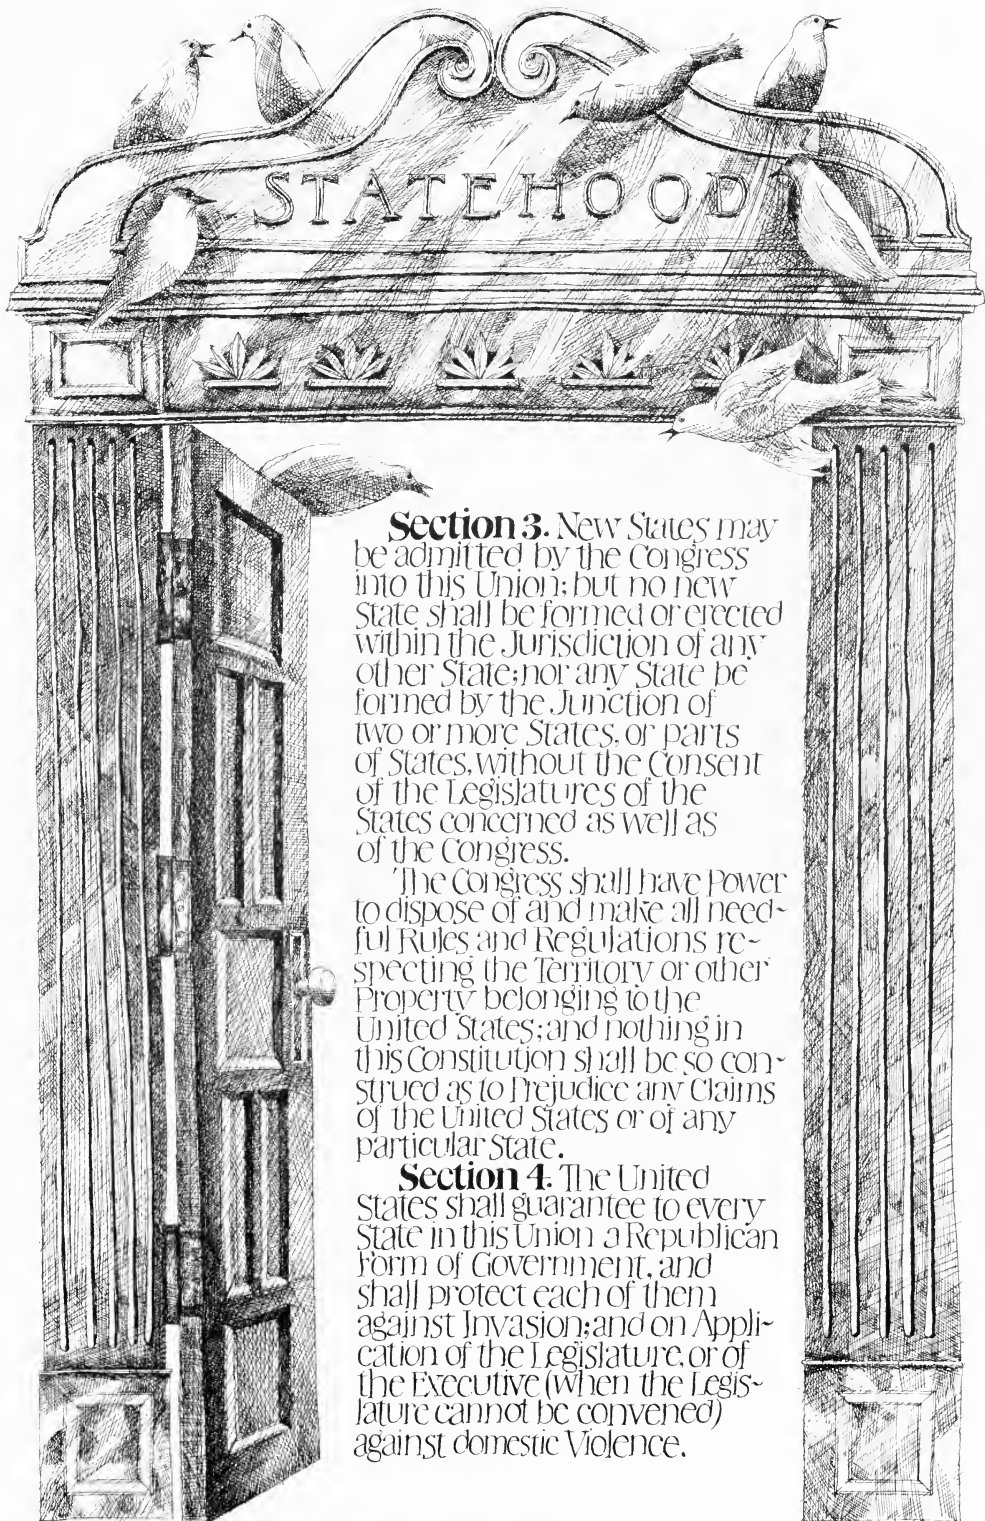 STATEHOOD
Section 3. New States may
be admitted by the Congress
into this Union; but no new
State shall be formed or erected
within the Jurisdiction of any
other State; nor any State be
formed by the Junction of
two or more States, or parts
of States, without the Consent
of the Legislatures of the
States concerned as well as
of the Congress.
The Congress shall have Power
to dispose of and make all need-
ful Rules and Regulations re-
specting the Territory or other
Property belonging to the
United States; and nothing in
this Constitution shall be so con-
strued as to Prejudice any Claims
of the United States or of any
particular State.
Section 4. The United
States shall guarantee to every
State in this Union a Republican
Form of Government, and
shall protect each of them
against Invasion; and on Appli-
cation of the Legislature, or of
the Executive (when the Legis-
lature cannot be convened)
against domestic Violence.